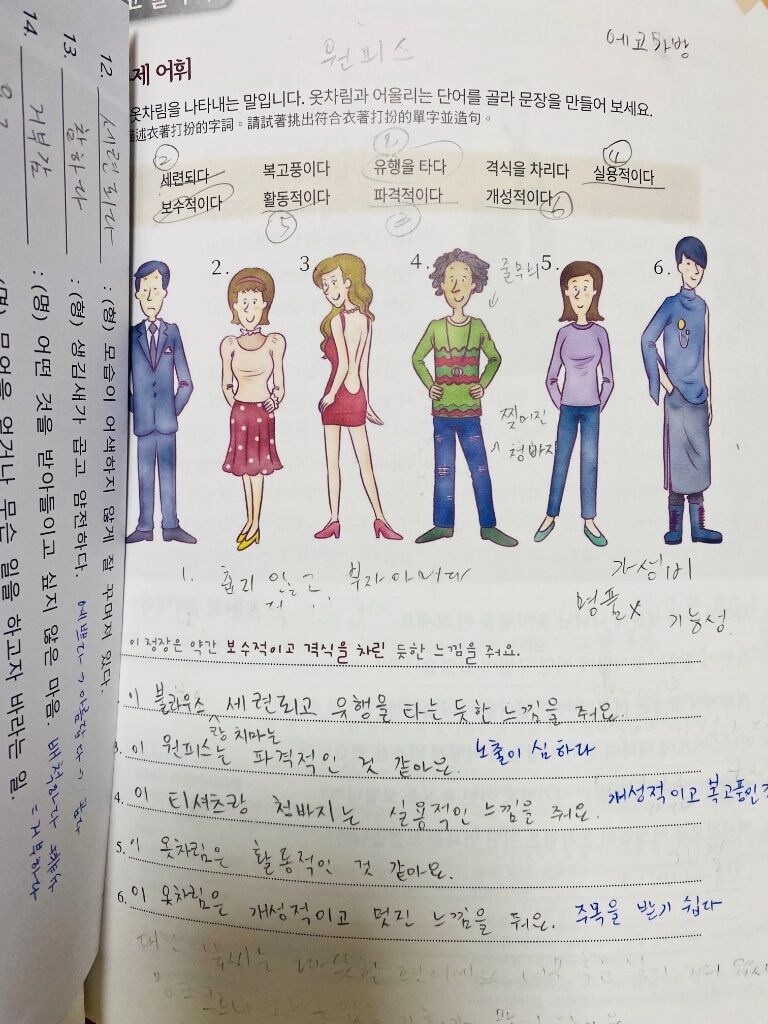 원피스
에코가방
제 어휘
옷차림을 나타내는 말입니다. 옷차림과 어울리는 단어를 골라 문장을 만들어 보세요.
描述衣著打扮的字詞。請試著挑出符合衣著打扮的單字並造句。
② ① ④
세련되다 복고풍이다 유행을 타다 격식을 차리다 실용적이다
보수적이다 활동적이다 파격적이다 개성적이다 ⑥
⑤
2. 3 4. 줄무늬 5. 6.
찢어진
청바지
1.
가성비
명품x 기능성.
이 정장은 약간 보수적이고 격식을 차린 듯한 느낌을 줘요.
이 블라우스 세련되고 유행을 타는 듯한 느낌을 줘요.
랑 치마는
3. 이 원피스는 파격적인 것 같아요. 노출이 심하다
4. 이 티셔츠랑 청바지는 실용적인 느낌을 줘요. 개성적이고 복고풍인
5. 이 옷차림은 활동적인 것 같아요.
6. 이 옷차림은 개성적이고 멋진 느낌을 줘요. 주목을 받기 쉽다
12. 세련되다 : (형) 모습이 어색하지 않게 잘 꾸며져 있다.
13. 참하다 : (형) 생김새가 곱고 얌전하다. 예쁘다
14. 거부감 : (명) 어떤 것을 받아들이고 싶지 않은 마음.
거부하다
(명) 무엇을 얻거나 무슨 일을 하고자 바라는 일.